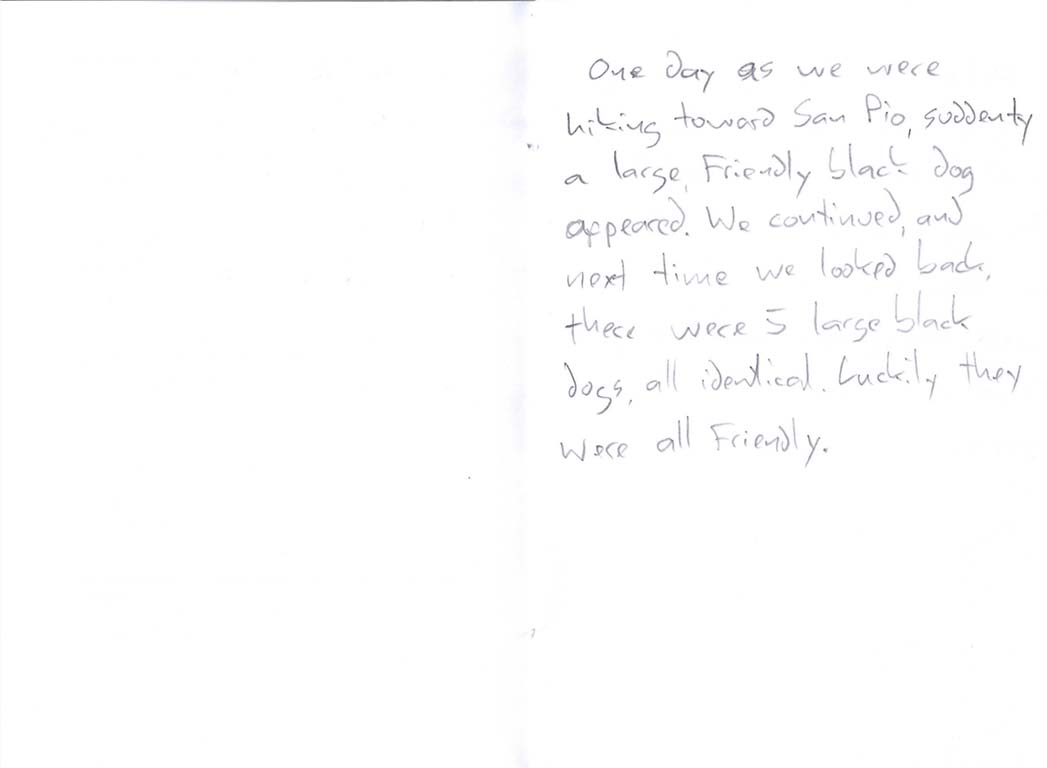 One day as we were
hiking toward San Pio, suddenty
a large, Friendly black dog
appeared. We continued, and
next time we looked back,
there were 5 large black
dogs, all identical. Luckily they
were all Friendly.